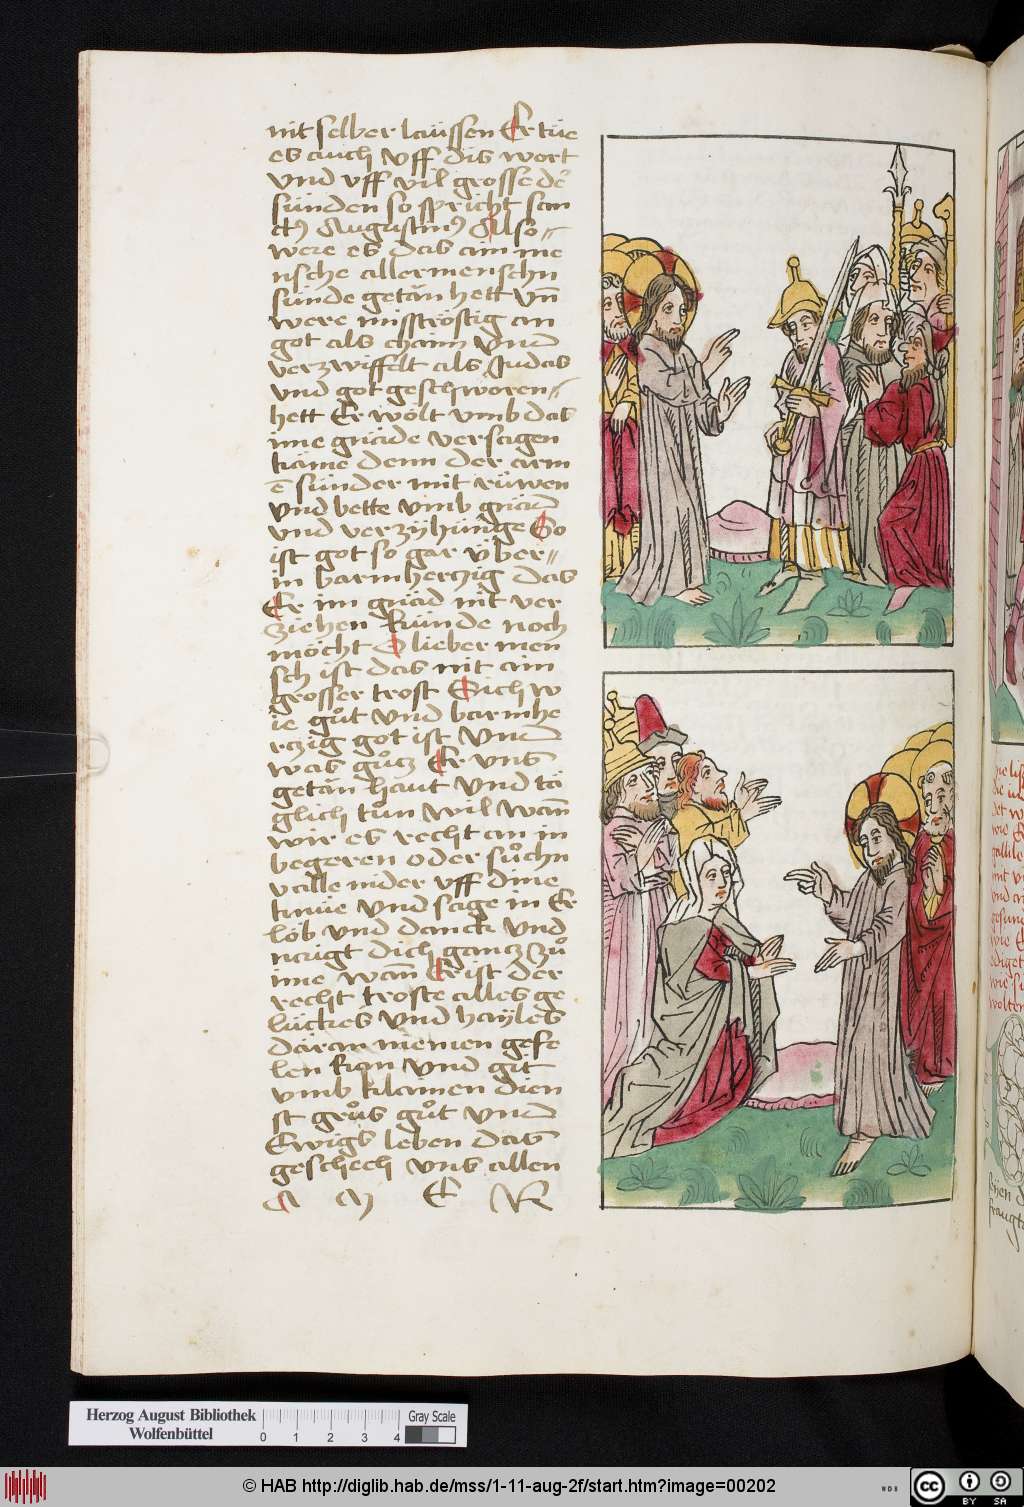 nit selber laussen Er tüe
es auch vff dis wort
vnd vff vil grosse de᷑
sünden so spricht san
ctꝰ Augustinꝰ Also
were es das ain me
nsche aller menschn
sünde getǎn hett vn̄
were misströstig an
got als chaim vnd
verzwiffelt als Judas
vnd got geschworen
hett Er wölt vmb das
ime gnǎde versagen
kǎme denn der arm
e sünder mit rüwen
vnd bette vmb gnǎd
vnd verzÿhünge So
ist got so gar über
in barmherczig das
Er im gnǎd nit ver
ziehen künde noch
möcht O lieber men
sch ist das nit ain
grosser trost Sich w
ie gůt vnd barmhe
rczig got ist vnd
was gůcz Er vns
getǎn haut vnd tǎ
glich tůn wil wan̄
wir es recht an in
begeren oder sůchn
valle nider vff dine
knüe vnd sage in Er
löb vnd danck vnd
naigt dich gancz zů
ime wan̄ Er ist der
recht troste alles ge
lückes vnd hayles
dǎran niemen gefe
len kan vnd git
vmb klainen dien
st grůs gůt vnd
Ewigs leben das
geschech vns allen
A M E N
Herzog August Bibliothek
Wolfenbüttel
0 1 2 3 4
Gray Scale
© HAB http://diglib.hab.de/mss/1-11-aug-2f/start.htm?image=00202
WDB
cc BY SA